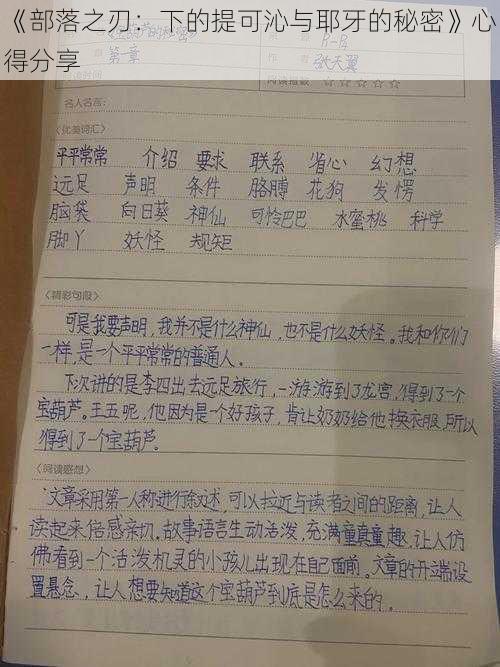 《部落之刃：下的提可沁与耶牙的秘密》心
得分享
第一章
张天翼
阅读指数 ☆☆☆☆☆
名人名言：
〈优美词汇〉
平平常常 介绍 要求 联系 省心 幻想
远足 声明 条件 胳膊 花狗 发愣
脑袋 向日葵 神仙 可怜巴巴 水蜜桃 科学
脚丫 妖怪 规矩
〈精彩句段〉
可是我要声明，我并不是什么神仙，也不是什么妖怪。我和你们
一样，是一个平平常常的普通人。
下次讲的是李四出去远足旅行，一游游到了龙宫，得到了一个
宝葫芦。王五呢，他因为是一个好孩子，肯让奶奶给他换衣服，所以
得到了一个宝葫芦。
〈阅读感想〉
文章采用第一人称进行叙述，可以拉近与读者之间的距离，让人
读起来倍感亲切。故事语言生动活泼，充满童真童趣，让人仿
佛看到一个活泼机灵的小孩儿出现在自己面前。文章的开端设
置悬念，让人想要知道这个宝葫芦到底是怎么来的。